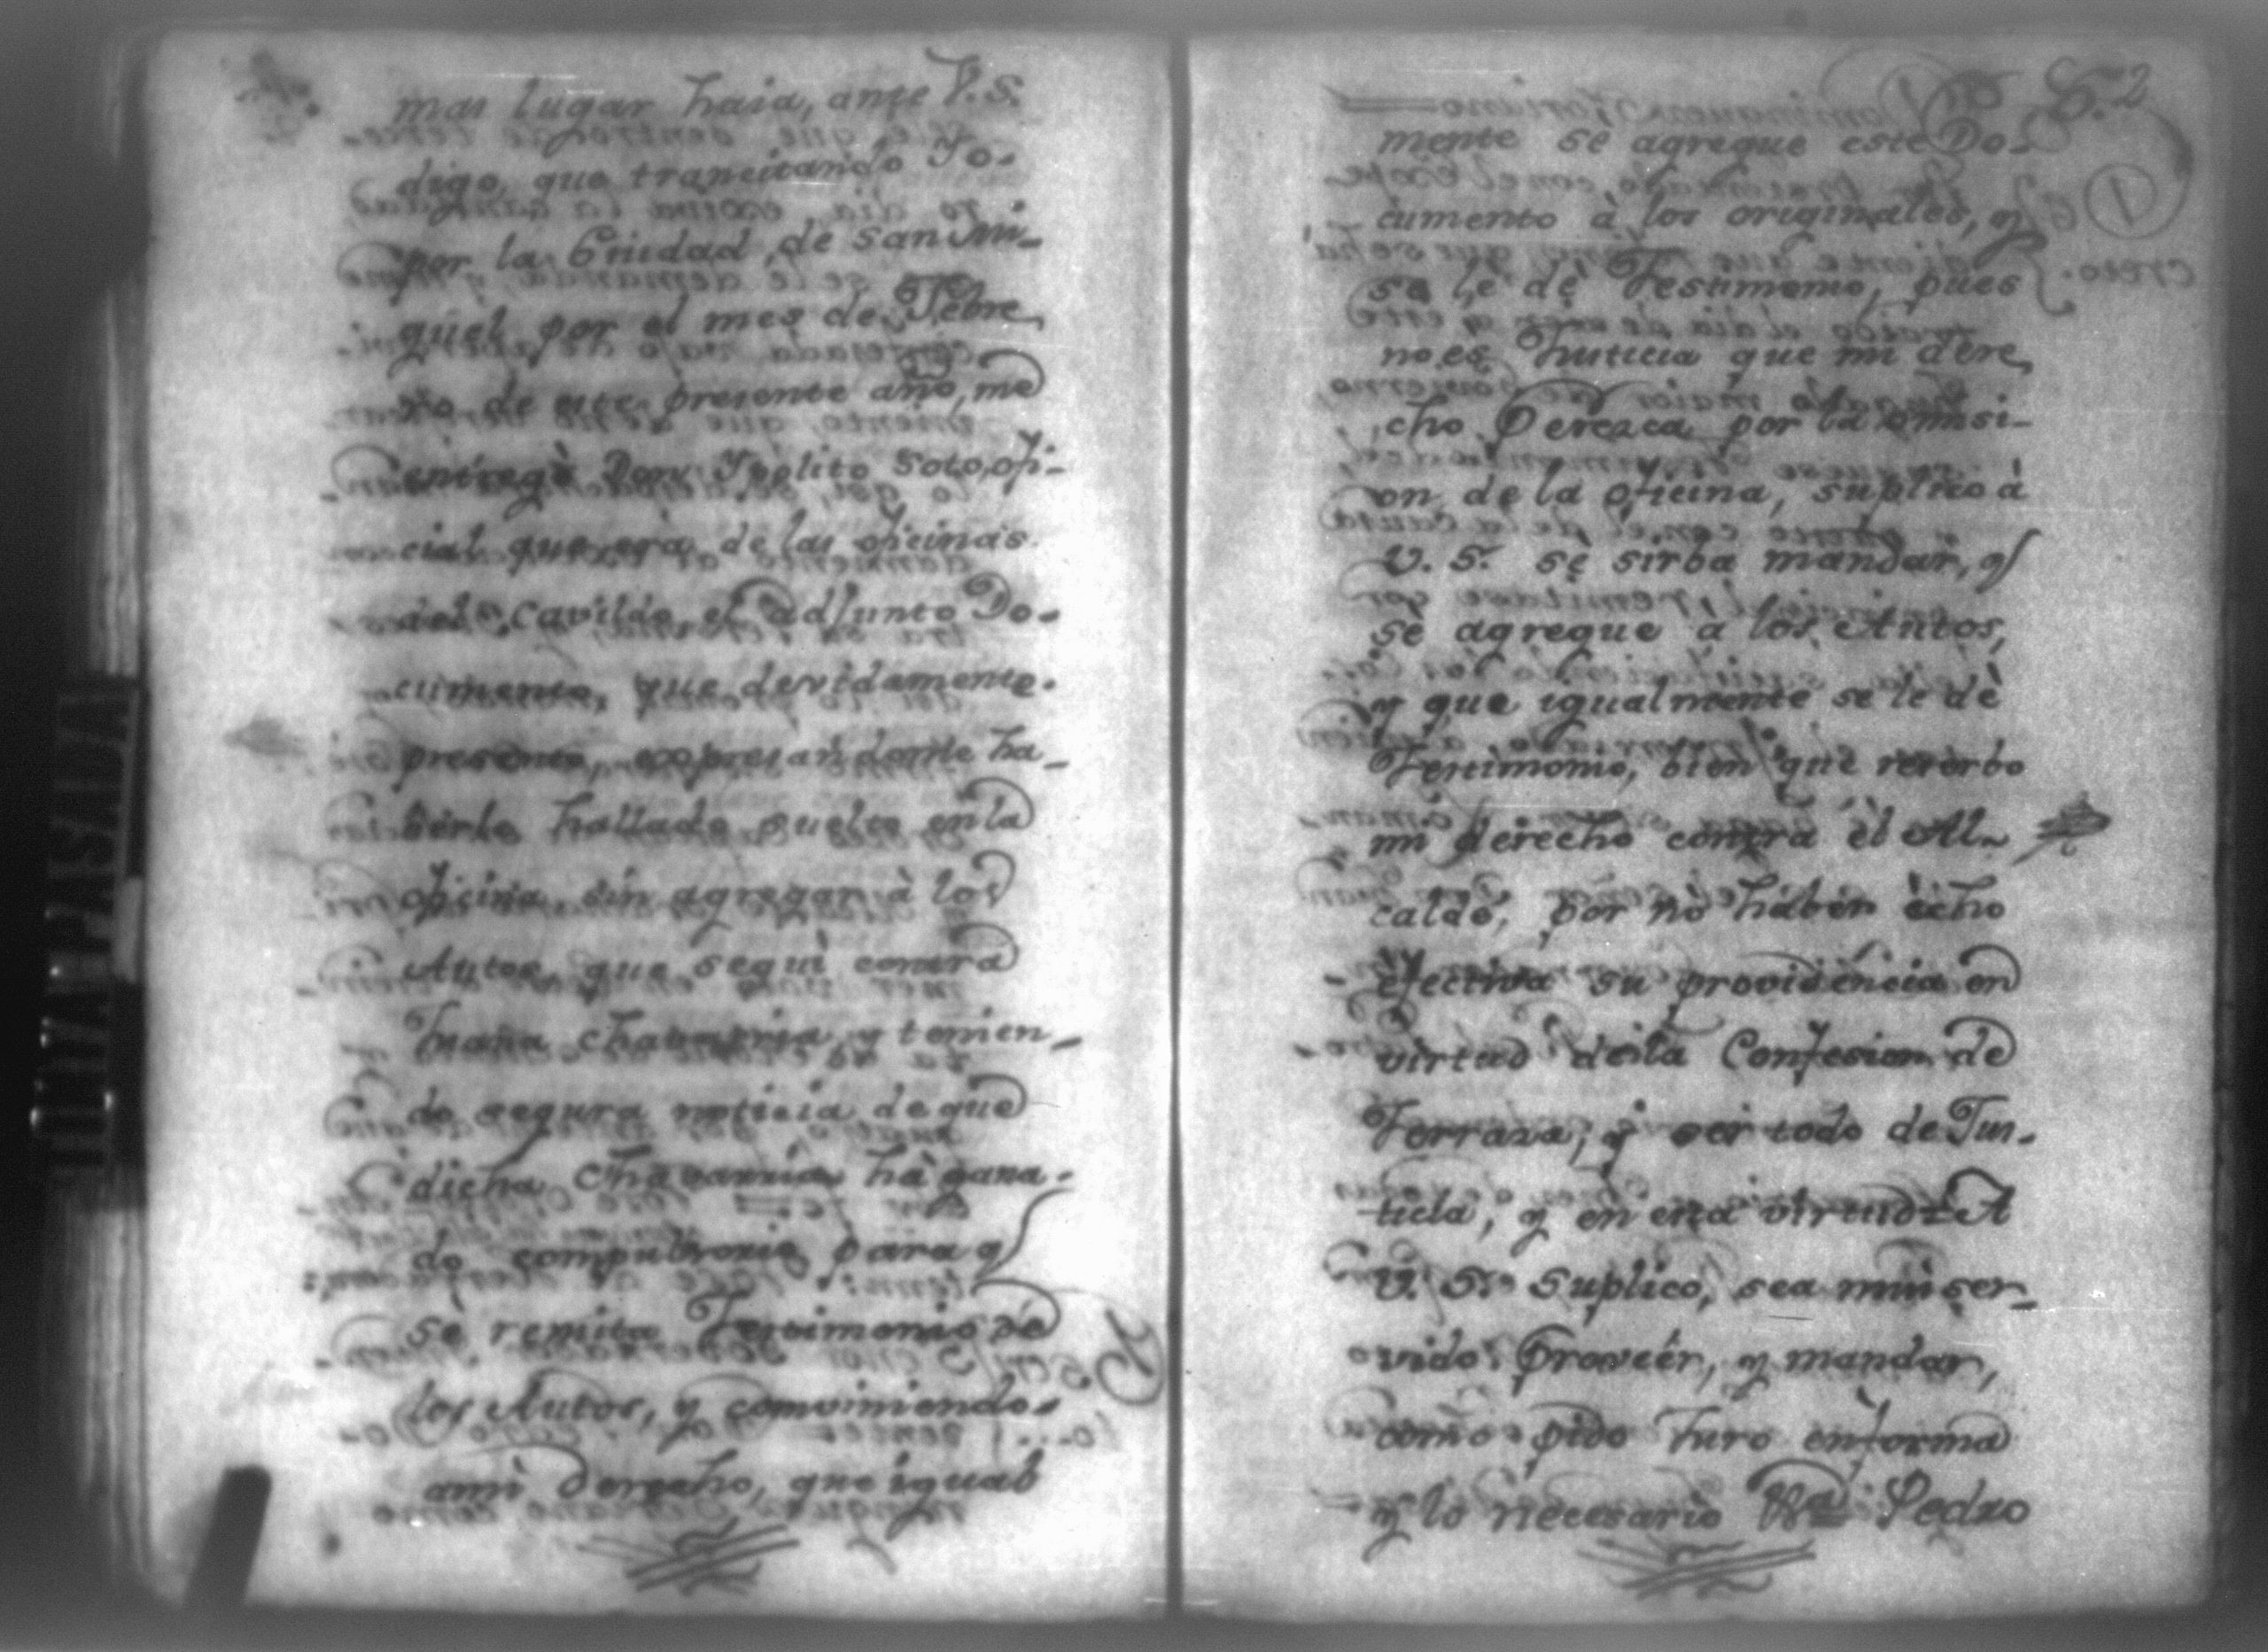 mas lugar haia, ante V. S.
digo, que trancitando Yo-
por la Ciudad, de San Mi-
guel por el mes de Febre
ro de este presente año, me
entregò Don Ypolito Soto, ofi-
cial que era de las oficinas
del Cavildo, el adjunto Do-
cumento, que devidamente
presento, expresandome ha-
berlo hallado suelto en la
oficina, sin agregar à los
Autos, que seguì contra
Juana Chavarria, y tenien-
do segura noticia de que
dicha Chavarria hà gana-
do compulsorio para q
sè remita Testimonio de
los Autos, y conviniendo
ami Derecho, que igual
2
mente sè agregue este Do-
cumento à los originales, y
se lè dè Testimonio, pues
no es Justicia que mi dere
cho Peresca por la omisi-
on de la oficina, suplico à
V. S. sè sirba mandar, q
sè agregue à los Autos,
y que igualmente se le dè
Testimonio, bien que reserbo
mi derecho contra èl Al-
calde, por nò haber ècho
efectiva su providencia en
virtud de la Confesion de
Terraza, y ser todo de Jus-
ticia, y en esta virtud = A
V. S. Suplico, sea mui ser-
vido Proveér, y mandar,
como pido Juro en forma
y lo necesario Pedro